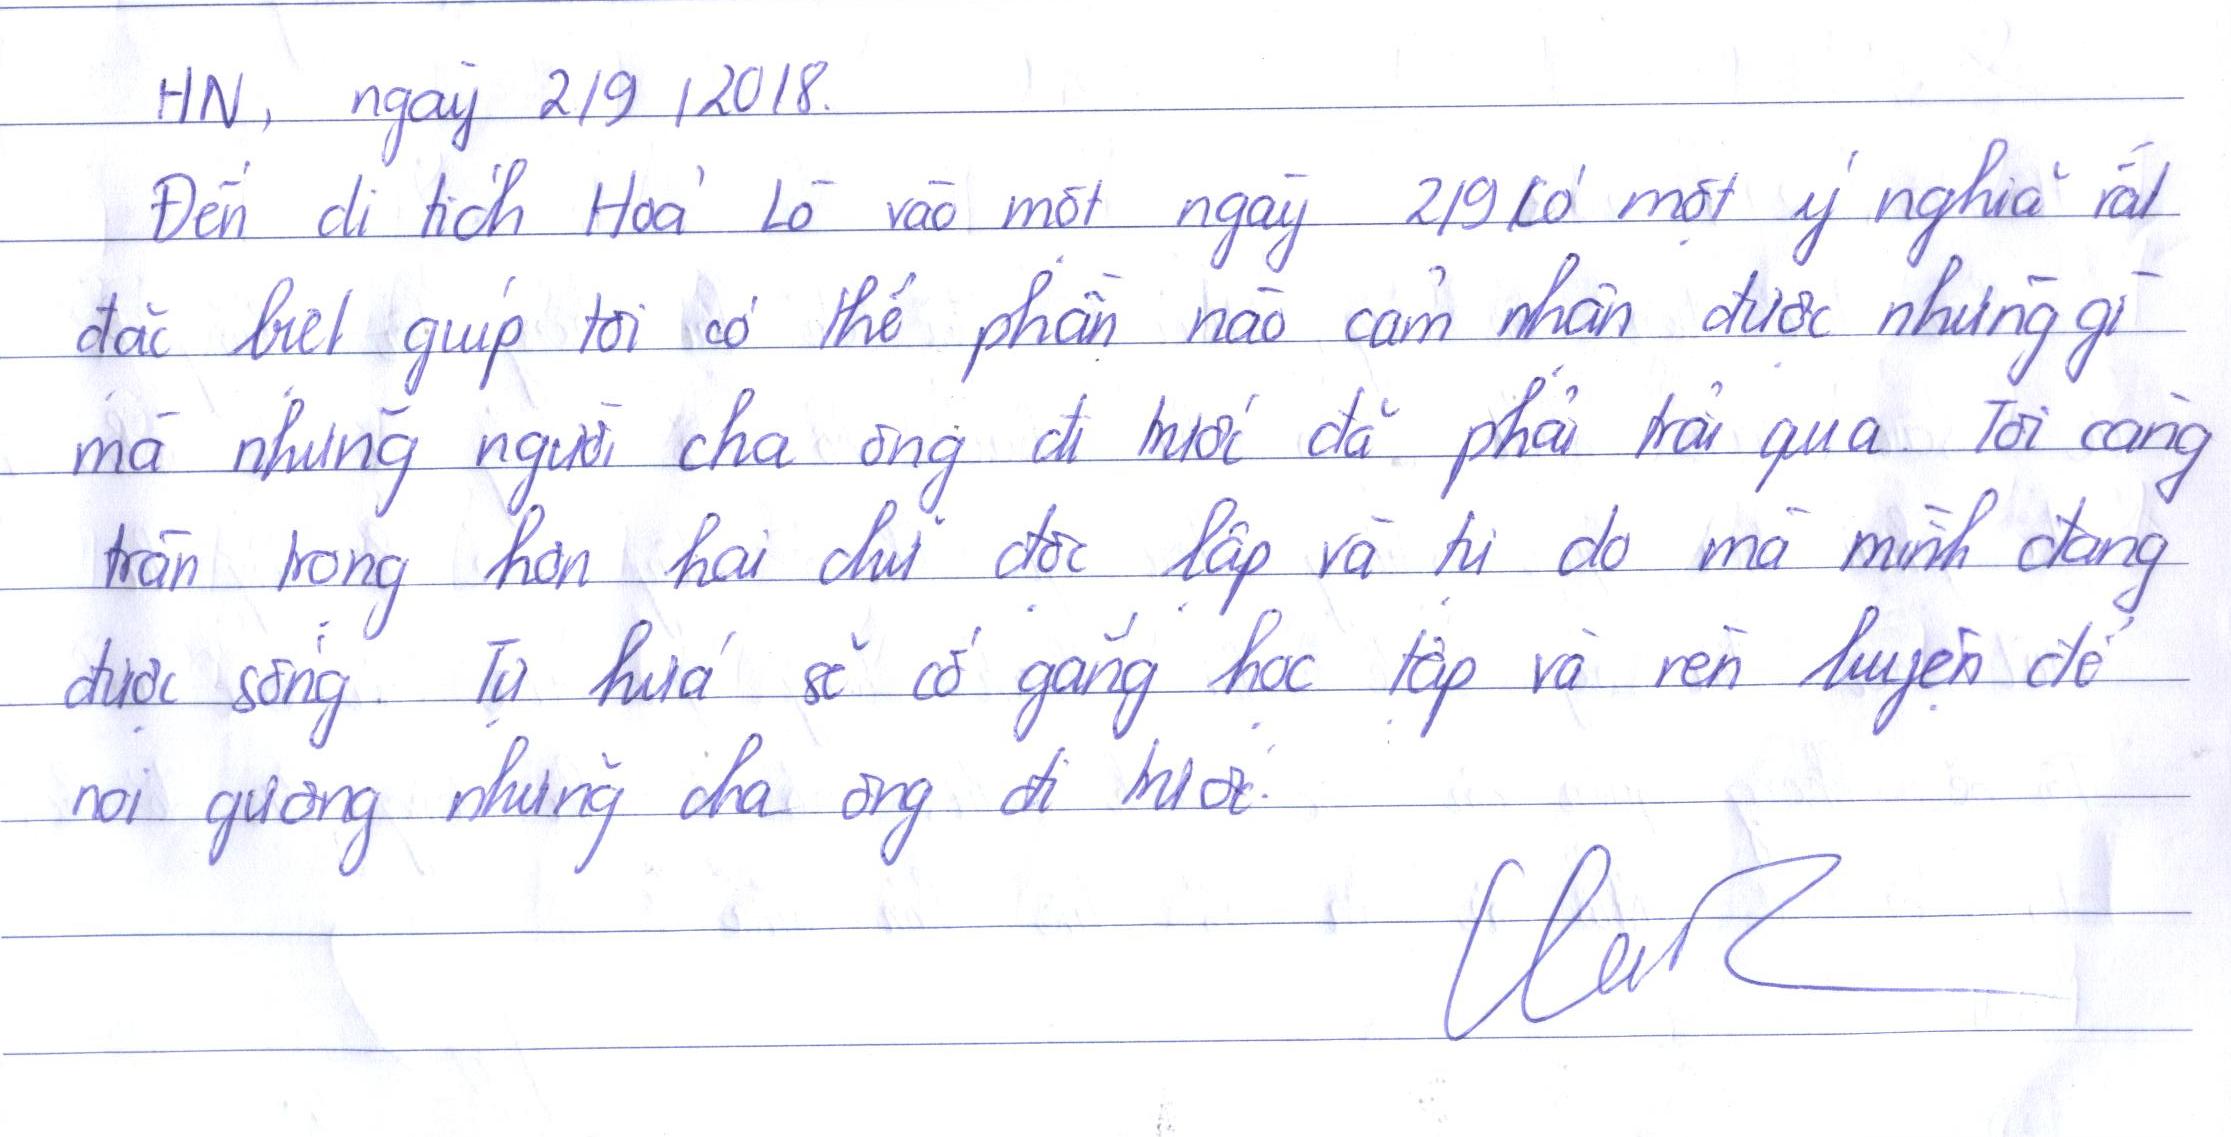 HN, ngày 2/9/2018.
Đến di tích Hoả Lò vào một ngày 2/9 có một ý nghĩa rất
đặc biệt giúp tôi có thể phần nào cảm nhận được những gì
mà những người cha ông đi trước đã phải trải qua. Tôi càng
trân trọng hơn hai chữ độc lập và tự do mà mình đang
được sống. Tự hứa sẽ cố gắng học tập và rèn luyện để
noi gương những cha ông đi trước.